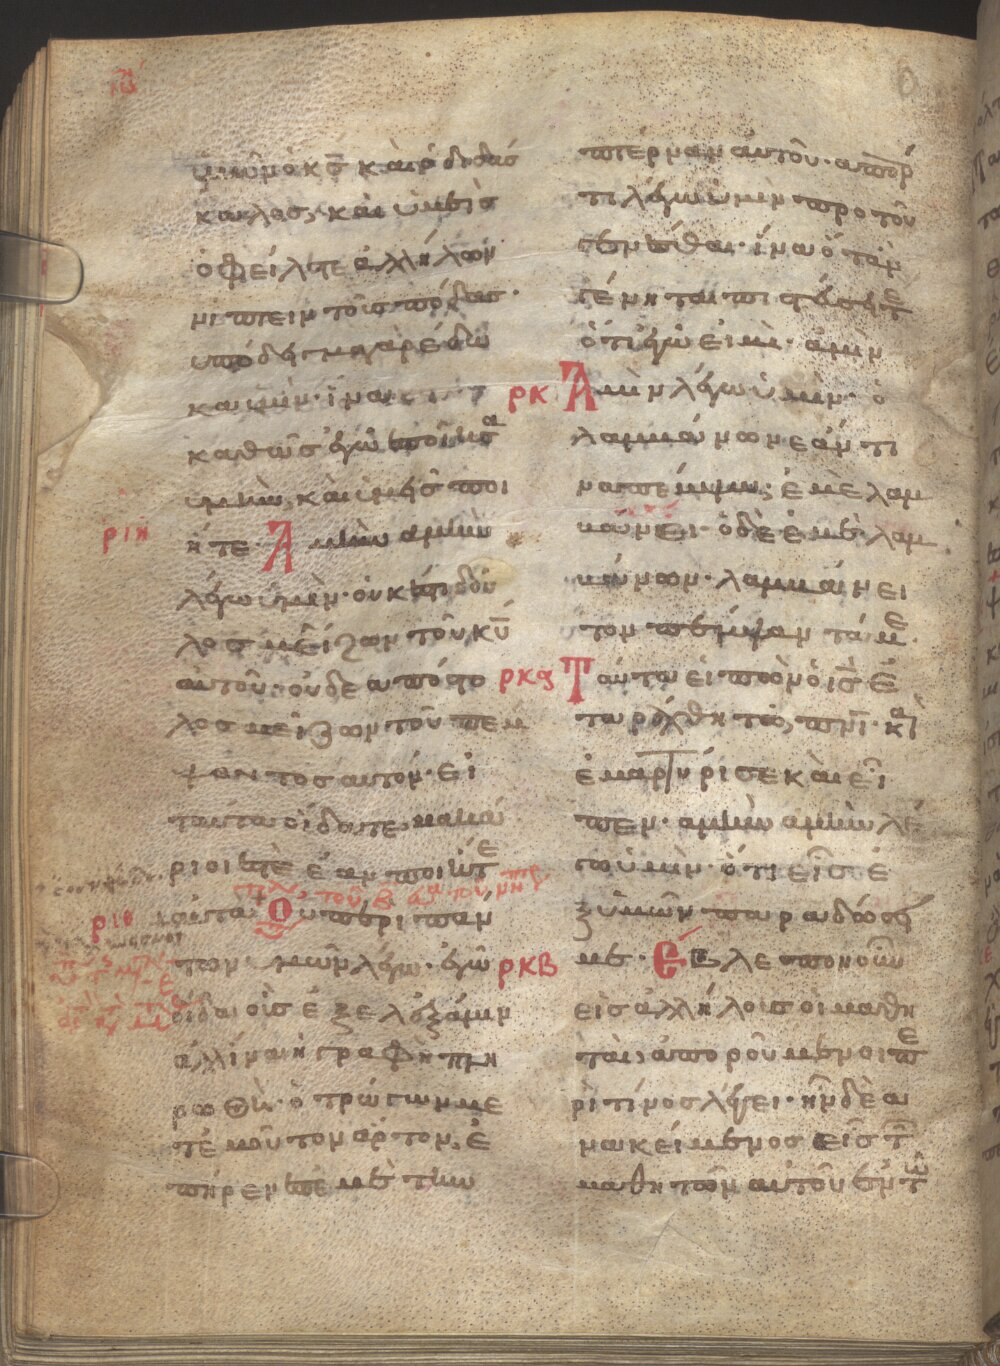 ὑμῶν ὁ κς καὶ ὁ διδάς
καλος, καὶ ὑμεῖς
ὀφείλετε ἀλλήλων
νίπτειν τοὺς πόδας·
ὑπόδηγμα γὰρ ἔδω
κα ὑμῖν· ἵνα
καθὼς ἐγὼ ἐποίησα
ὑμῖν, καὶ ὑμεῖς ποι
ῆτε· Ἀμὴν ἀμὴν
ριη
λέγω ὑμῖν· οὐκ ἔστι δού
λος μείζων τοῦ κυ
αὐτοῦ· οὐδὲ ἀπόστο
λος μείζων τοῦ πέμ
ψαντος αὐτόν· εἰ
ταῦτα οἴδατε, μακά
ριοί ἐστε ἐὰν ποιῆτε
ριθ
ταῦτα· Οὐ περὶ πάν
των ὑμῶν λέγω· ἐγὼ
οἶδα οὓς ἐξελεξάμην
ἀλλ ἵνα ἡ γραφὴ πλη
ρωθῆ· ὁ τρώγων με
τ ἐμοῦ τὸν ἄρτον, ἐ
πῆρεν ἐπ ἐμὲ τὴν
πτέρναν αὐτοῦ· ἀπ ἄρ
τι λέγω ὑμῖν πρὸ τοῦ
γενέσθαι· ἵνα ὅταν
γένηται πιστεύσητε
ὅτι ἐγώ εἰμι· ἀμὴν
ρκ
Ἀμὴν λέγω ὑμῖν· ὁ
λαμβάνων ἐάν τι
να πέμψω, ἐμὲ λαμ
βάνει· ὁ δὲ ἐμὲ λαμ
βάνων· λαμβάνει
τὸν πέμψαντά με·
ρκα
Ταῦτα εἰπὼν ὁ ις ἐ
ταράχθη τῶ πνι· καὶ
ἐμαρτύρισε καὶ εἶ
πεν· ἀμὴν ἀμὴν λέ
γω ὑμῖν· ὅτι εἷς ἐ
ξ ὑμῶν παραδώσει
ρκβ
με· Ἔβλεπον οὖν
εἰς ἀλλήλους οἱ μαθη
ταὶ, ἀπορούμενοι πε
ρὶ τίνος λέγει· ἦν δὲ ἀ
νακείμενος εἷς τ
μαθητῶν αὐτοῦ ἐν τῶ